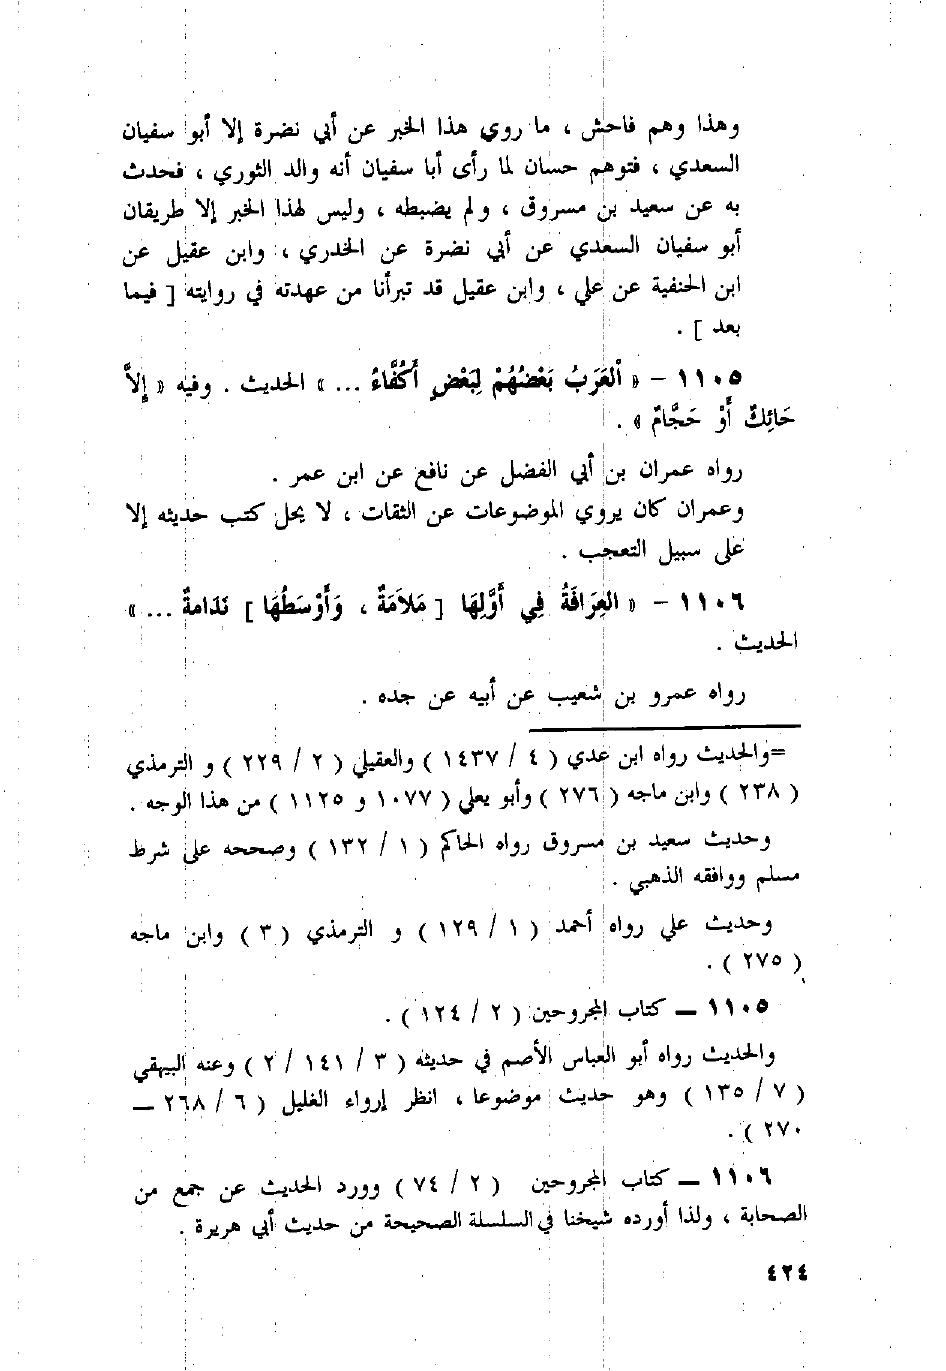 وهذا وهم فاحش ، ما روي هذا الخبر عن أبي نضرة إلا أبو سفيان
السعدي ، فتوهم حسان لما رأى أبا سفيان أنه والد الثوري ، فحدث
به عن سعيد بن مسروق ، ولم يضبطه ، وليس لهذا الخبر إلا طريقان
أبو سفيان السعدي عن أبي نضرة عن الخدري ، وابن عقيل عن
ابن الحنفية عن علي ، وابن عقيل قد تبرأنا من عهدته في روايته [ فيما
بعد ] .
١١٠٥ – « أَلْعَرَبُ بَعْضُهُمْ لِبَعْضٍ أَكْفَاءُ ... » الحديث . وفيه « إِلاَّ
حَائِكٌ أَوْ حَجَّامٌ » .
رواه عمران بن أبي الفضل عن نافع عن ابن عمر .
وعمران كان يروي الموضوعات عن الثقات ، لا يحل كتب حديثه إلا
على سبيل التعجب .
١١٠٦ – « الْعِرَافَةُ فِي أَوَّلِهَا [ مَلاَمَةٌ ، وَأَوْسَطُهَا ] نَدَامةٌ ... »
الحديث .
رواه عمرو بن شعيب عن أبيه عن جده .
=والحديث رواه ابن عدي ( ٤ / ١٤٣٧ ) والعقيلي ( ٢ / ٢٢٩ ) و الترمذي
( ٢٣٨ ) وابن ماجه ( ٢٧٦ ) وأبو يعلي ( ١٠٧٧ و ١١٢٥ ) من هذا الوجه .
وحديث سعيد بن مسروق رواه الحاكم ( ١ / ١٣٢ ) وصححه على شرط
مسلم ووافقه الذهبي .
وحديث علي رواه أحمد ( ١ / ١٢٩ ) و الترمذي ( ٣ ) وابن ماجه
( ٢٧٥ ) .
١١٠٥ — كتاب المجروحين ( ٢ / ١٢٤ ) .
والحديث رواه أبو العباس الأصم في حديثه ( ٣ / ١٤١ / ٢ ) وعنه البيهقي
( ٧ / ١٣٥ ) وهو حديث موضوعا ، انظر إرواء الغليل ( ٦ / ٢٦٨ —
٢٧٠ ) .
١١٠٦ — كتاب المجروحين ( ٢ / ٧٤ ) وورد الحديث عن جمع من
الصحابة ، ولذا أورده شيخنا في السلسلة الصحيحة من حديث أبي هريرة .
٤٢٤